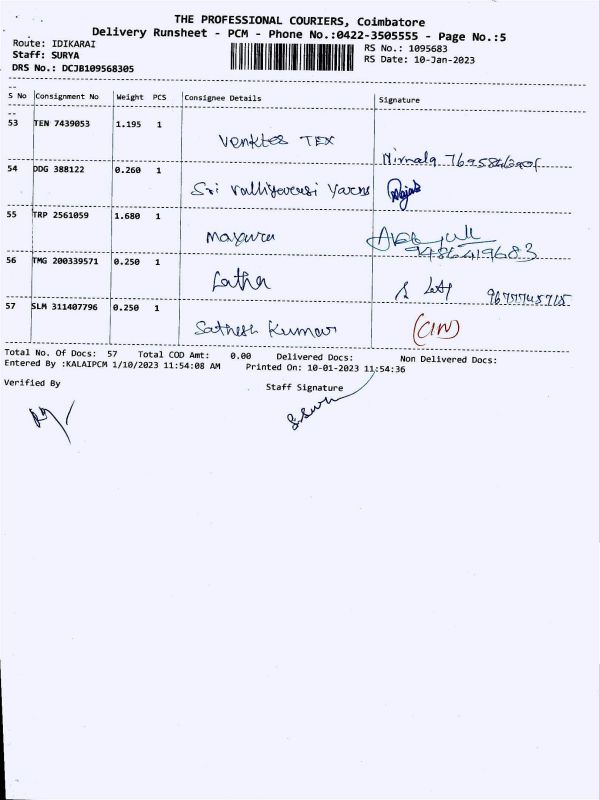 THE PROFESSIONAL COURIERS, Coimbatore
Delivery Runsheet - PCM - Phone No.:0422-3505555 - Page No.:5
Route: IDIKARAI
RS No.: 1095683
Staff: SURYA
RS Date: 10-Jan-2023
DRS No.: DCJB109568305
S No Consignment No Weight PCS Consignee Details Signature
53 TEN 7439053 1.195 1 Venktes TEX Nirmala
54 DDG 388122 0.260 1 Sri Valliyavensi Yarns
55 TRP 2561059 1.680 1 Mayura 9486419683
56 TMG 200339571 0.250 1 Latha
57 SLM 311407796 0.250 1 Sathesh Kumar (CIN)
Total No. Of Docs: 57 Total COD Amt: 0.00 Delivered Docs: Non Delivered Docs:
Entered By :KALAIPCM 1/10/2023 11:54:08 AM Printed On: 10-01-2023 11:54:36
Verified By Staff Signature